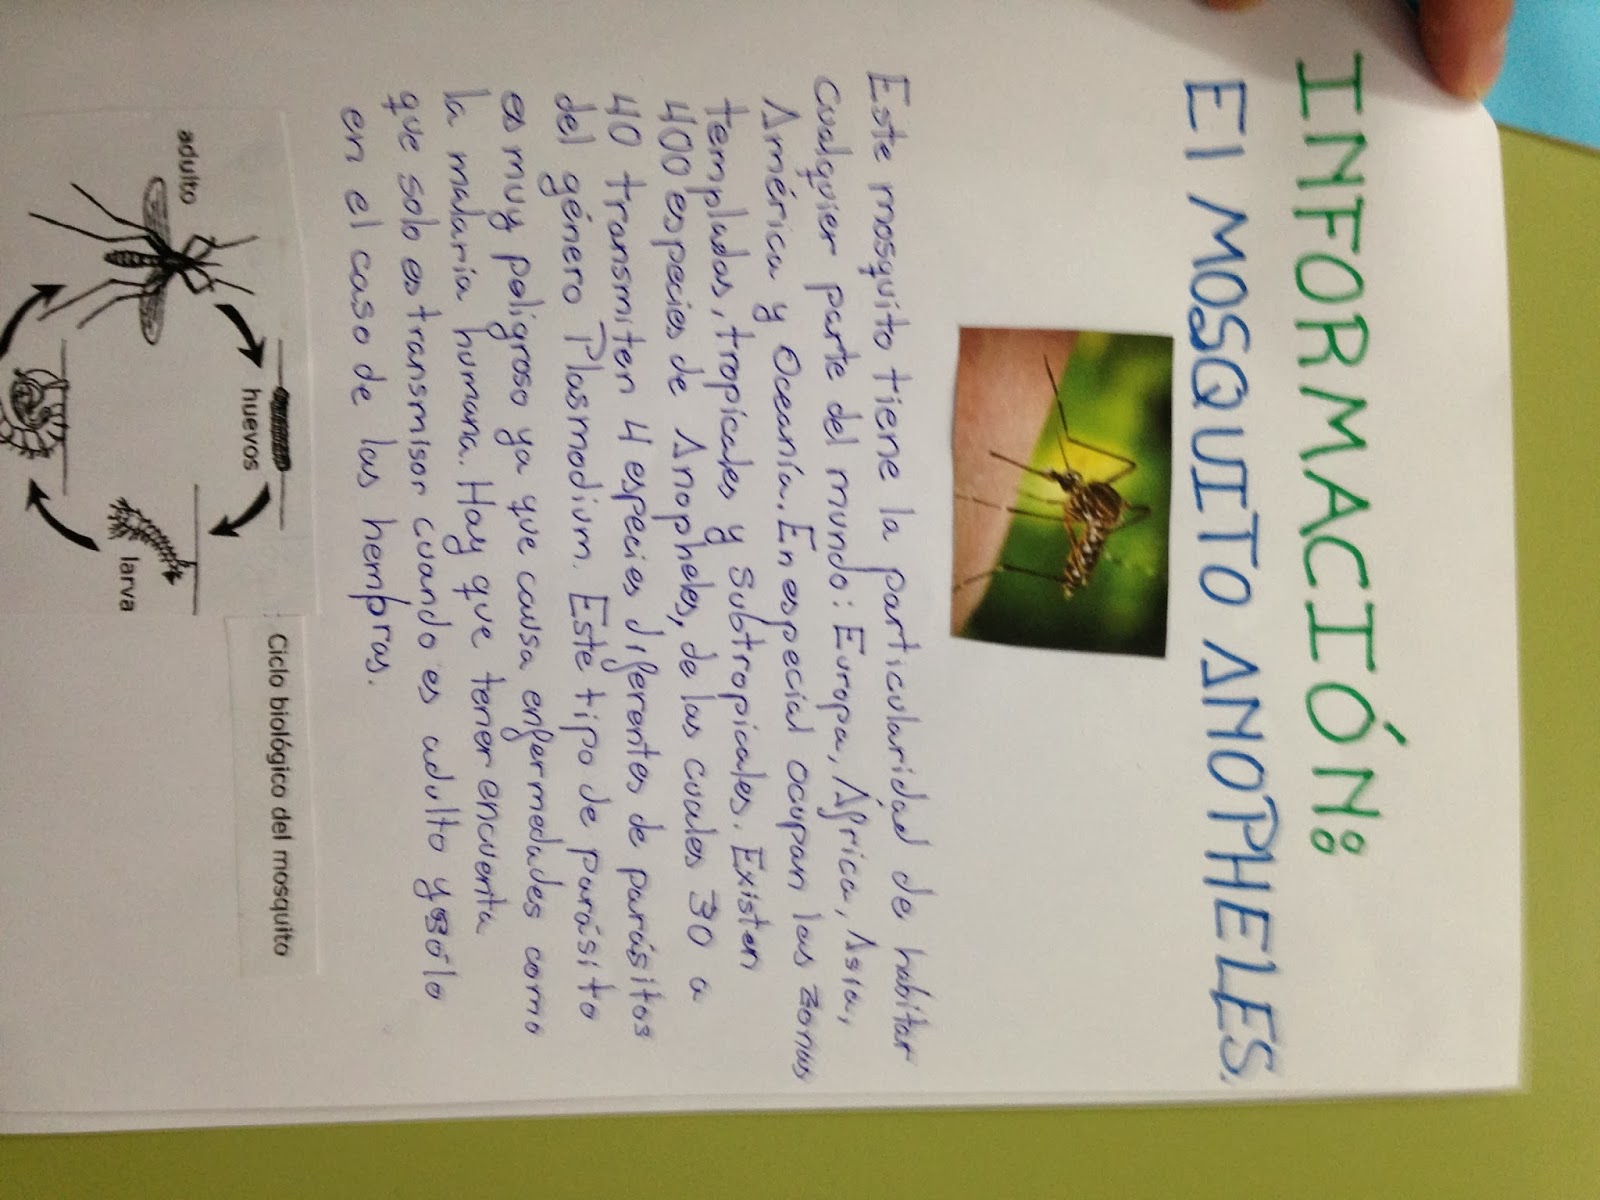 INFORMACIÓN:
El MOSQUITO ANOPHELES.
Este mosquito tiene la particularidad de habitar
cualquier parte del mundo: Europa, África, Asia,
América y Oceanía. En especial ocupan las zonas
templadas, tropicales y subtropicales. Existen
400 especies de Anopheles, de las cuales 30 a
40 transmiten 4 especies diferentes de parásitos
del género Plasmodium. Este tipo de parásito
es muy peligroso ya que causa enfermedades como
la malaria humana. Hay que tener encuenta
que solo es transmisor cuando es adulto y sólo
en el caso de las hembras.
Ciclo biológico del mosquito
adulto
huevos
larva